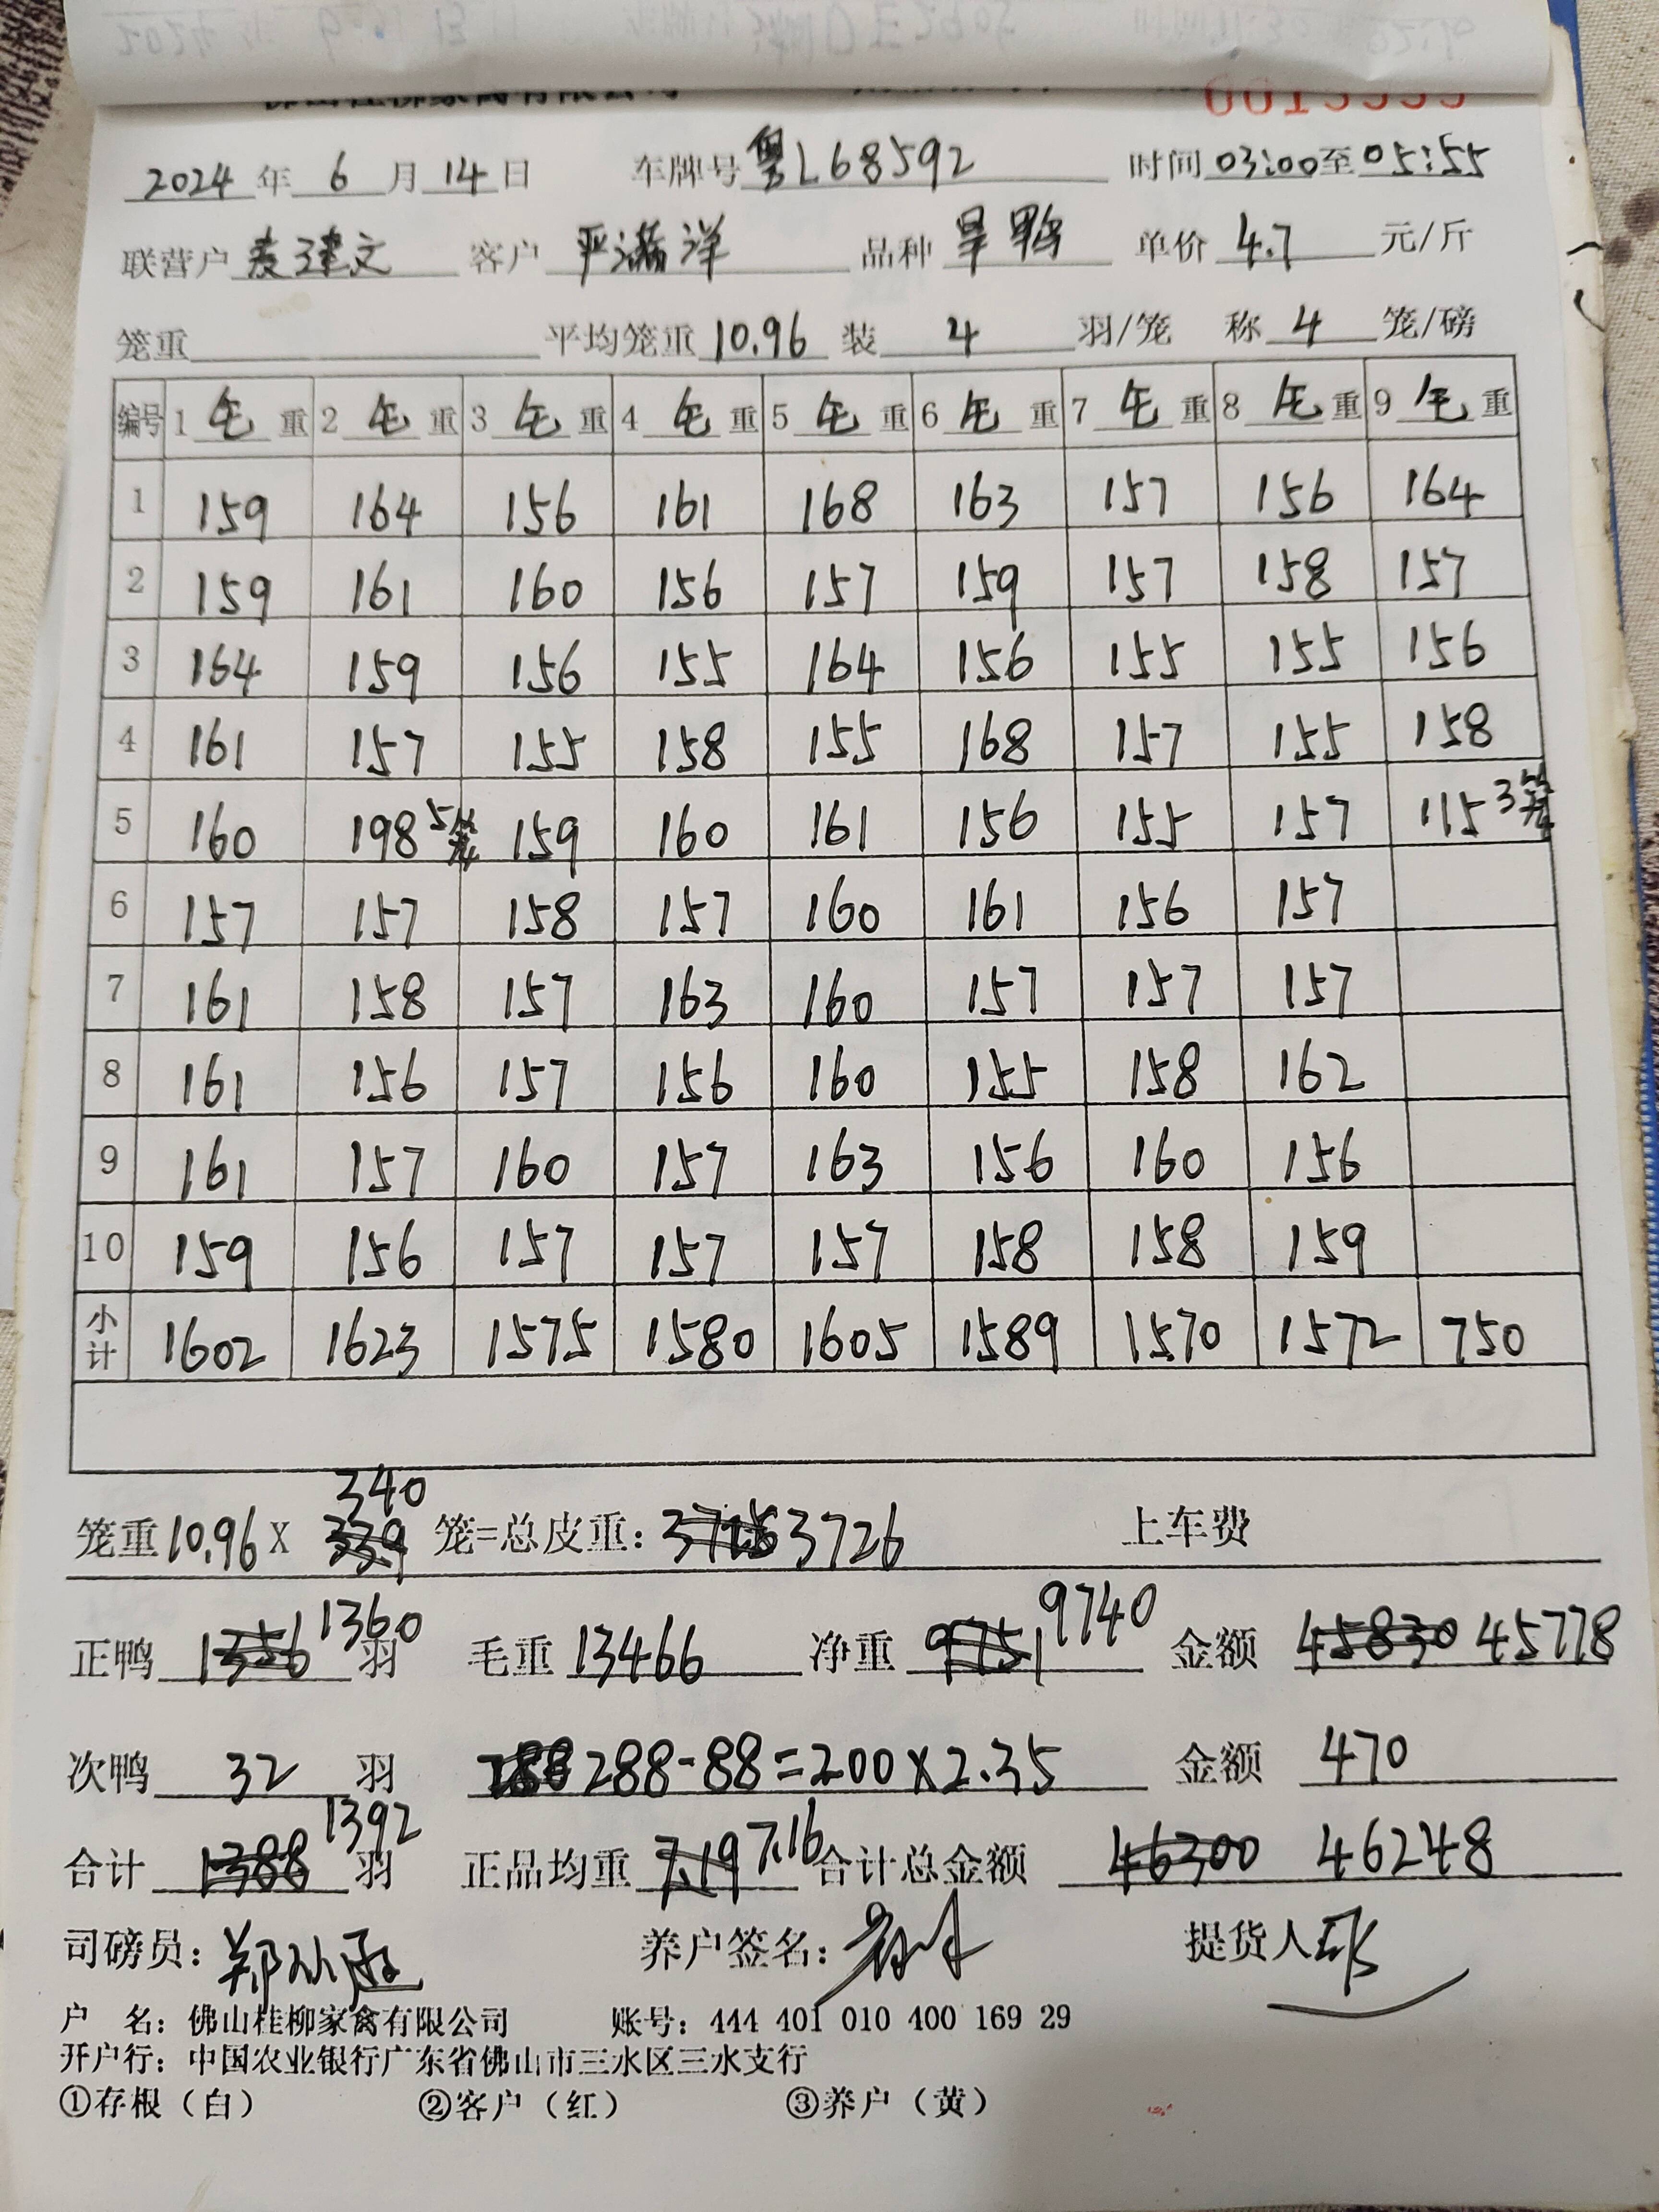 2024 年 6 月 14 日 车牌号 粤L68592 时间 03:00 至 05:55
联营户 麦建文 客户 严满洋 品种 旱鸭 单价 4.7 元/斤
笼重 平均笼重 10.96 装 4 羽/笼 称 4 笼/磅
编号 1 毛 重 2 毛 重 3 毛 重 4 毛 重 5 毛 重 6 毛 重 7 毛 重 8 毛 重 9 毛 重
1 159 164 156 161 168 163 157 156 164
2 159 161 160 156 157 159 157 158 157
3 164 159 156 155 164 156 155 155 156
4 161 157 155 158 155 168 157 155 158
5 160 198 5笼 159 160 161 156 155 157 115 3笼
6 157 157 158 157 160 161 156 157
7 161 158 157 163 160 157 157 157
8 161 156 157 156 160 155 158 162
9 161 157 160 157 163 156 160 156
10 159 156 157 157 157 158 158 159
小计 1602 1623 1575 1580 1605 1589 1570 1572 750
笼重 10.96 X 339 340 笼=总皮重: 3726 上车费
正鸭 1356 1360 羽 毛重 13466 净重 9751 9740 金额 45830 45778
次鸭 32 羽 288-88=200×2.35 金额 470
合计 1388 1392 羽 正品均重 7.19 7.16 合计总金额 46300 46248
司磅员: 养户签名: 提货人
户 名: 佛山桂柳家禽有限公司 账号: 444 401 010 400 169 29
开户行: 中国农业银行广东省佛山市三水区三水支行
①存根（白） ②客户（红） ③养户（黄）